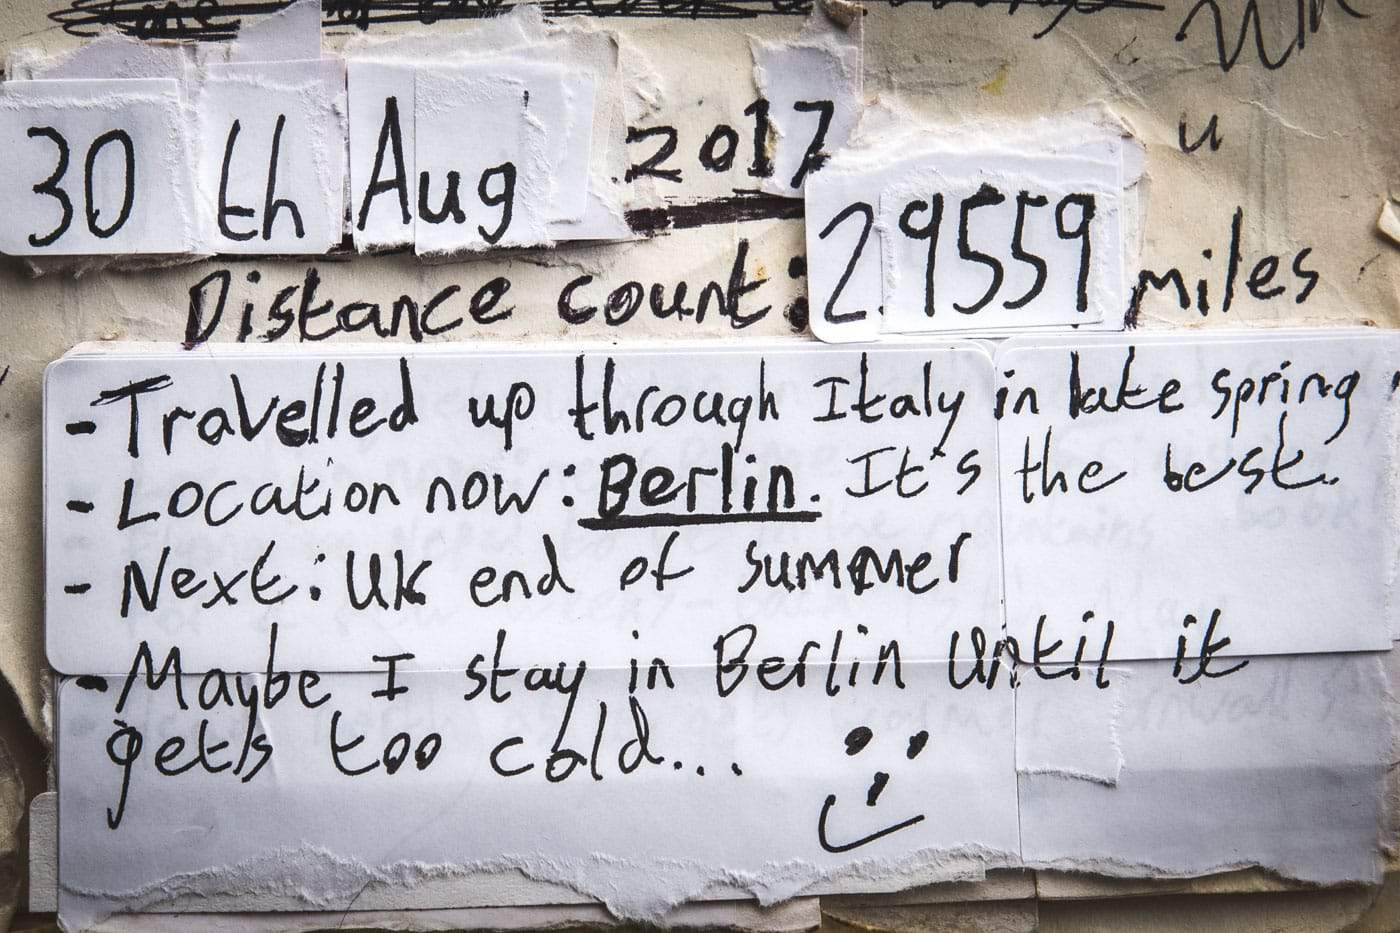 30 th Aug 2017
Distance count: 29559 miles
- Travelled up through Italy in late spring
- Location now: Berlin. It's the best.
- Next: UK end of summer
- Maybe I stay in Berlin until it
gets too cold...